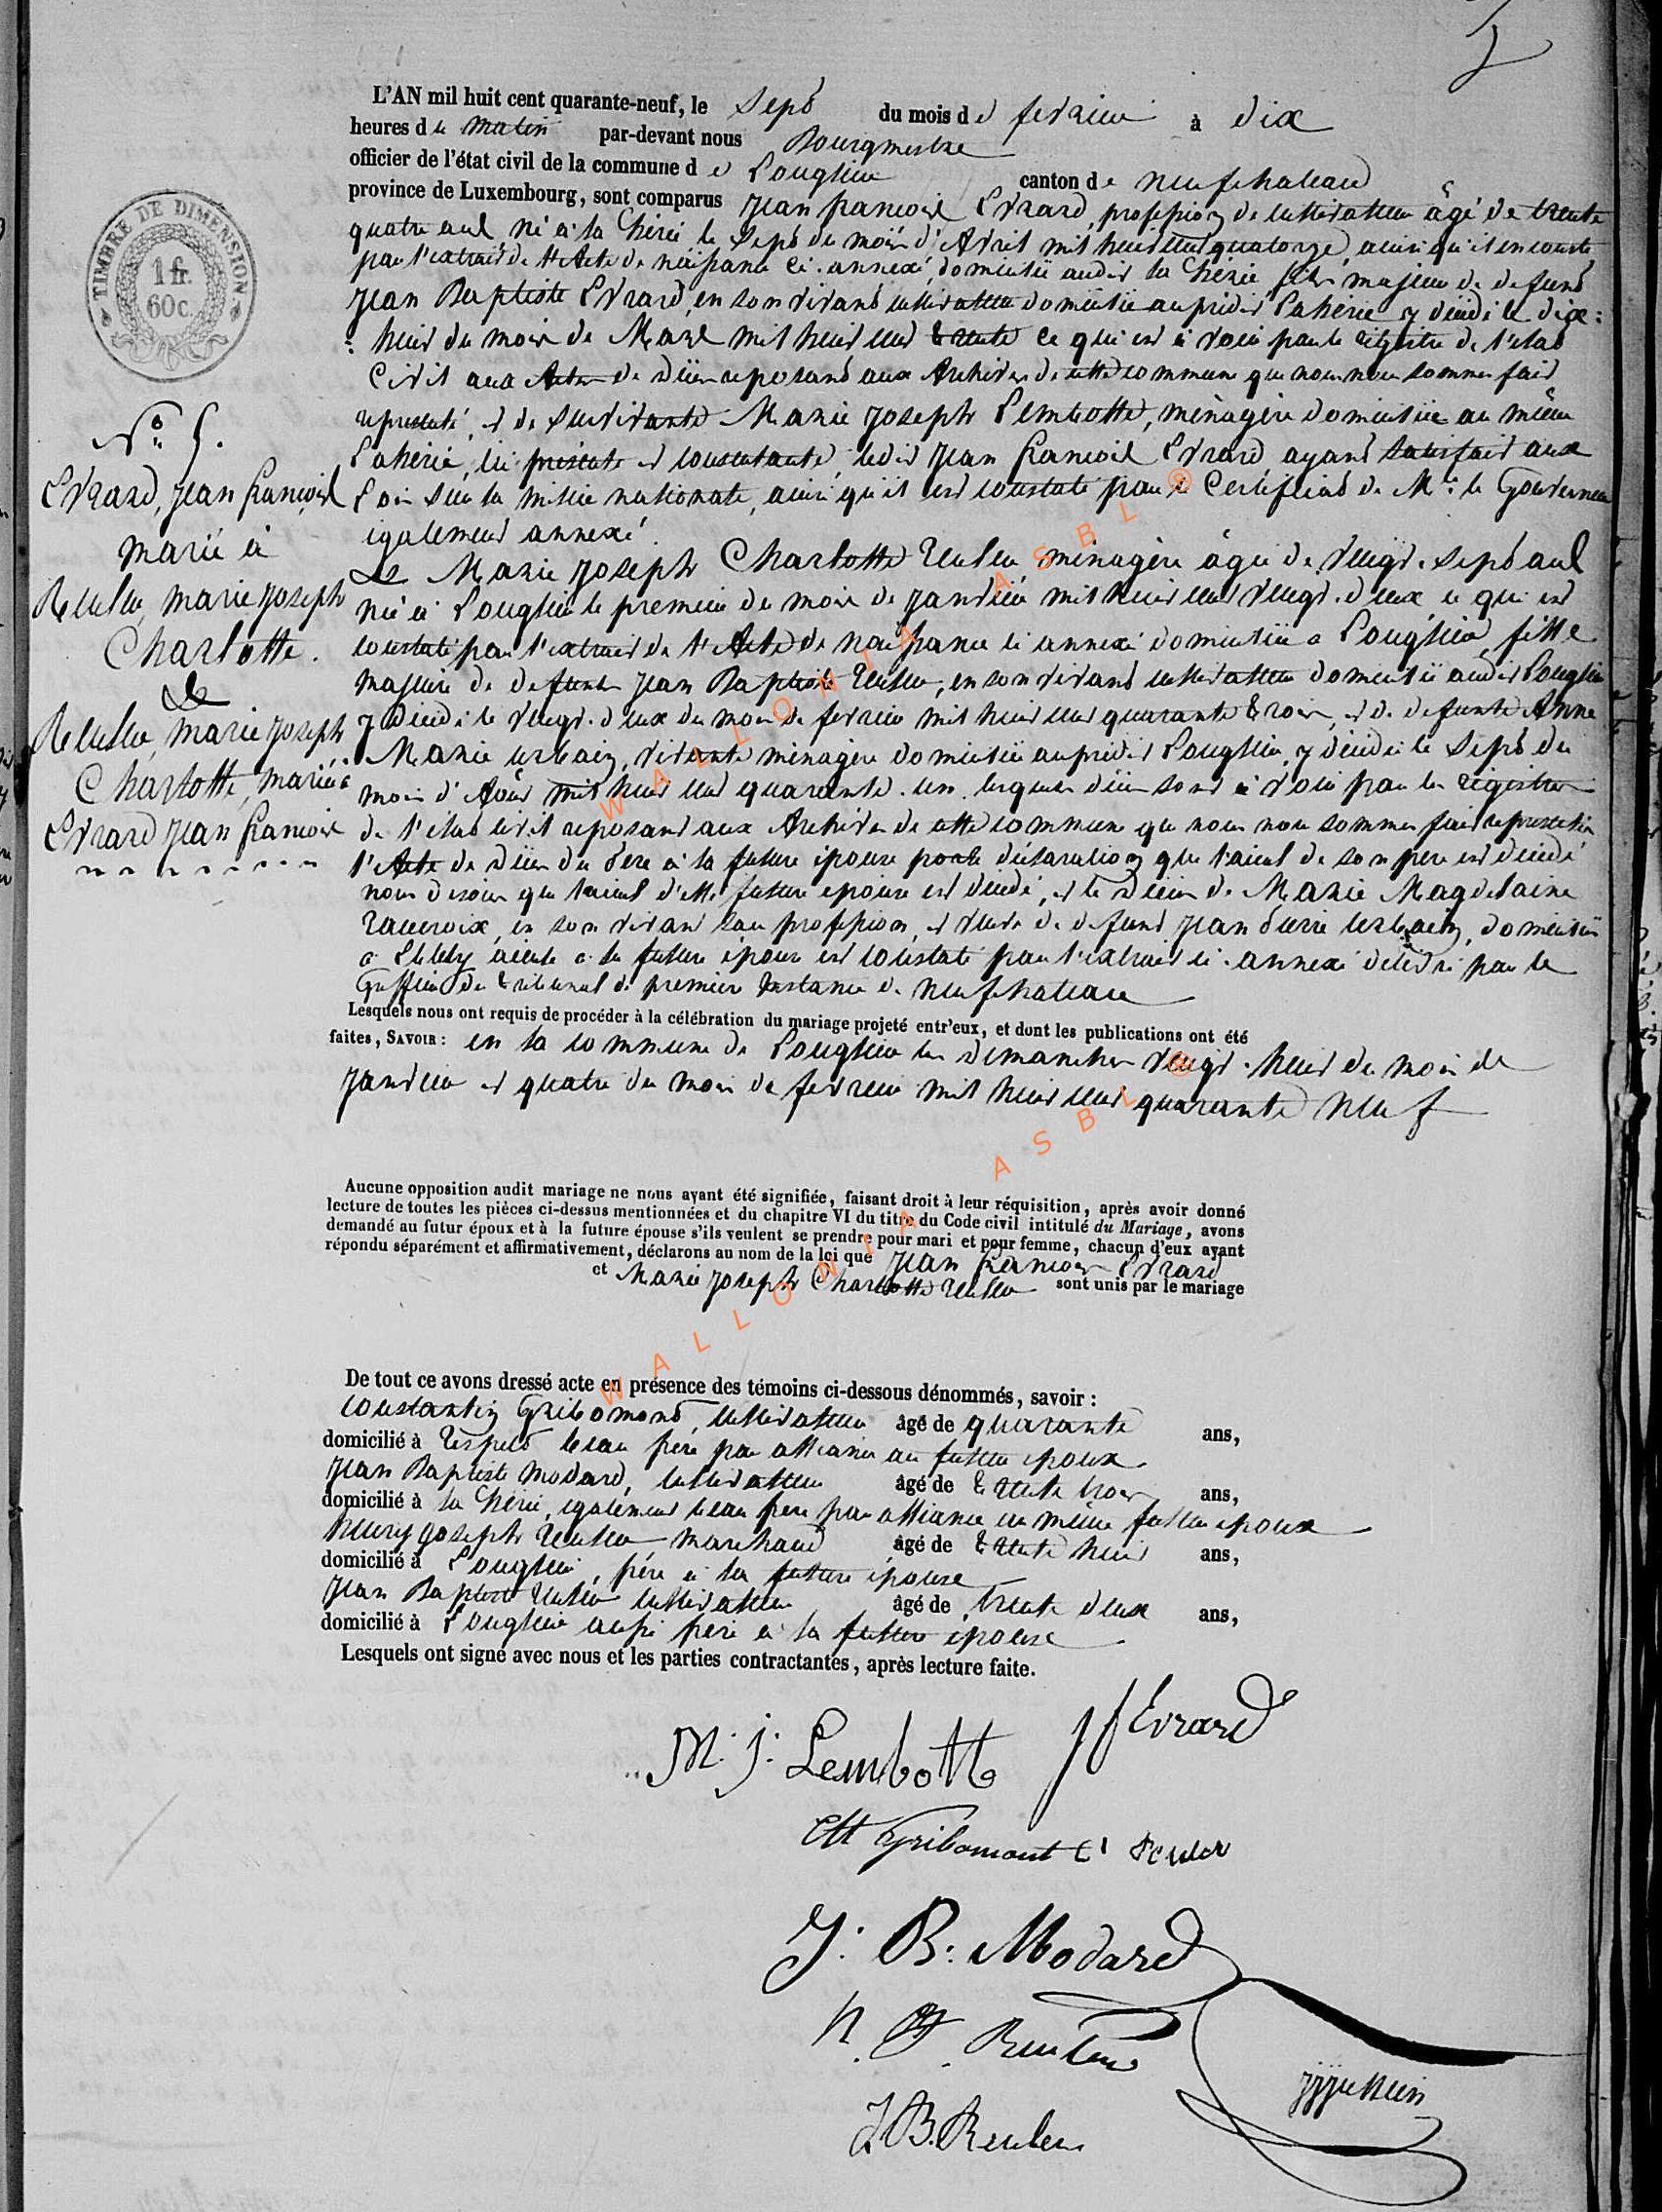 TIMBRE DE DIMENSION
1 fr.
60c.
L'AN mil huit cent quarante-neuf, le sept du mois de fevrier à dix
heures du matin par-devant nous Bourgmestre
officier de l'état civil de la commune de Longlier canton de Neufchateau
province de Luxembourg, sont comparus Jean françois Evrard, profession de cultivateur âgé de trente
quatre ans né à la hérie le sept du mois d'Avril mil huit cent quatorze, ainsi qu'il en conste
par l'extrait de l'Acte de naissance ci-annexé, domicilié audit la hérie fils majeur de defunt
Jean Baptiste Evrard, en son vivant cultivateur domicilié au predit Lahérie y décédé le dix-
huit du mois de Mars mil huit cent trente ce qui est à voir par le régistre de l'etat
Civil aux Actes de décès reposant aux Archives de cette commune que nous nous sommes fait
representé, et de survivante Marie Joseph Lembotte, ménagère domiciliée au même
Lahérie, ici présente et consentante, ledit Jean françois Evrard ayant satisfait aux
Lois sur la milice nationale, ainsi qu'il est constaté par le Certificat de Mr. le Gouverneur
également annexé.
Et Marie Joseph Charlotte Reuler ménagère âgée de vingt-sept ans
née à Longlier le premier du mois de Janvier mil huit cent vingt-deux, ce qui est
constaté par l'extrait de l'Acte de naissance ci annexé domiciliée a Longlier, fille
majeure de defunt Jean Baptiste Reuler, en son vivant cultivateur domicilié audit Longlier
y décédé le vingt-deux du mois de fevrier mil huit cent quarante trois, et de defunte Anne
Marie urbain, vivante ménagère domiciliée au predit Longlier, y décédée le sept du
mois d'Août mil huit cent quarante-un, lesquels décès sont à voir par les régistres
de l'etat civil reposant aux Archives de cette commune que nous nous sommes fait representés
l'Acte de décès du Père à la future épouse porte déclaration que l'aieul de son pere est décédé
nous disons que l'aieul d'elle future epouse est décédé, et le décès de Marie Magdelaine
en son vivant sans profession, et veuve de defunt Jean Pierre urbain, domiciliée
a aieule à la future épouse est constaté par l'extrait ci-annexé délivré par le
Greffier du tribunal de premiere Instance de Neufchateau
Lesquels nous ont requis de procéder à la célébration du mariage projeté entr'eux, et dont les publications ont été
faites, SAVOIR: en la commune de Longlier les dimanches vingt-huit du mois de
Janvier et quatre du mois de fevrier mil huit cent quarante neuf
Aucune opposition audit mariage ne nous ayant été signifiée, faisant droit à leur réquisition, après avoir donné
lecture de toutes les pièces ci-dessus mentionnées et du chapitre VI du titre du Code civil intitulé du Mariage, avons
demandé au futur époux et à la future épouse s'ils veulent se prendre pour mari et pour femme, chacun d'eux ayant
répondu séparément et affirmativement, déclarons au nom de la loi que Jean françois Evrard
et Marie Joseph Charlotte Reuler sont unis par le mariage
De tout ce avons dressé acte en présence des témoins ci-dessous dénommés, savoir :
Constantin Gribomont, cultivateur âgé de quarante ans,
domicilié à Respelt beau frère par alliance au futur epoux
Jean Baptiste Modard, cultivateur âgé de trente trois ans,
domicilié à la hérie, également beau frere par alliance au même futur epoux
henry Joseph Reuler marchand âgé de trente huit ans,
domicilié à Longlier, frére à la future épouse
Jean Baptiste Reuler cultivateur âgé de trente deux ans,
domicilié à Longlier aussi frére à la future epouse
Lesquels ont signé avec nous et les parties contractantes, après lecture faite.
M. J. Lembotte
J f Evrard
Gribomont C. Reuler
J. B: Modard
h. J. Reuler
J B. Reuler
No. 5.
Evrard, Jean françois
marié à
Reuler, marie Joseph
Charlotte.
&
Reuler, marie Joseph
Charlotte, mariée à
Evrard Jean françois
WALLONIA ASBL ®
WALLONIA ASBL ®